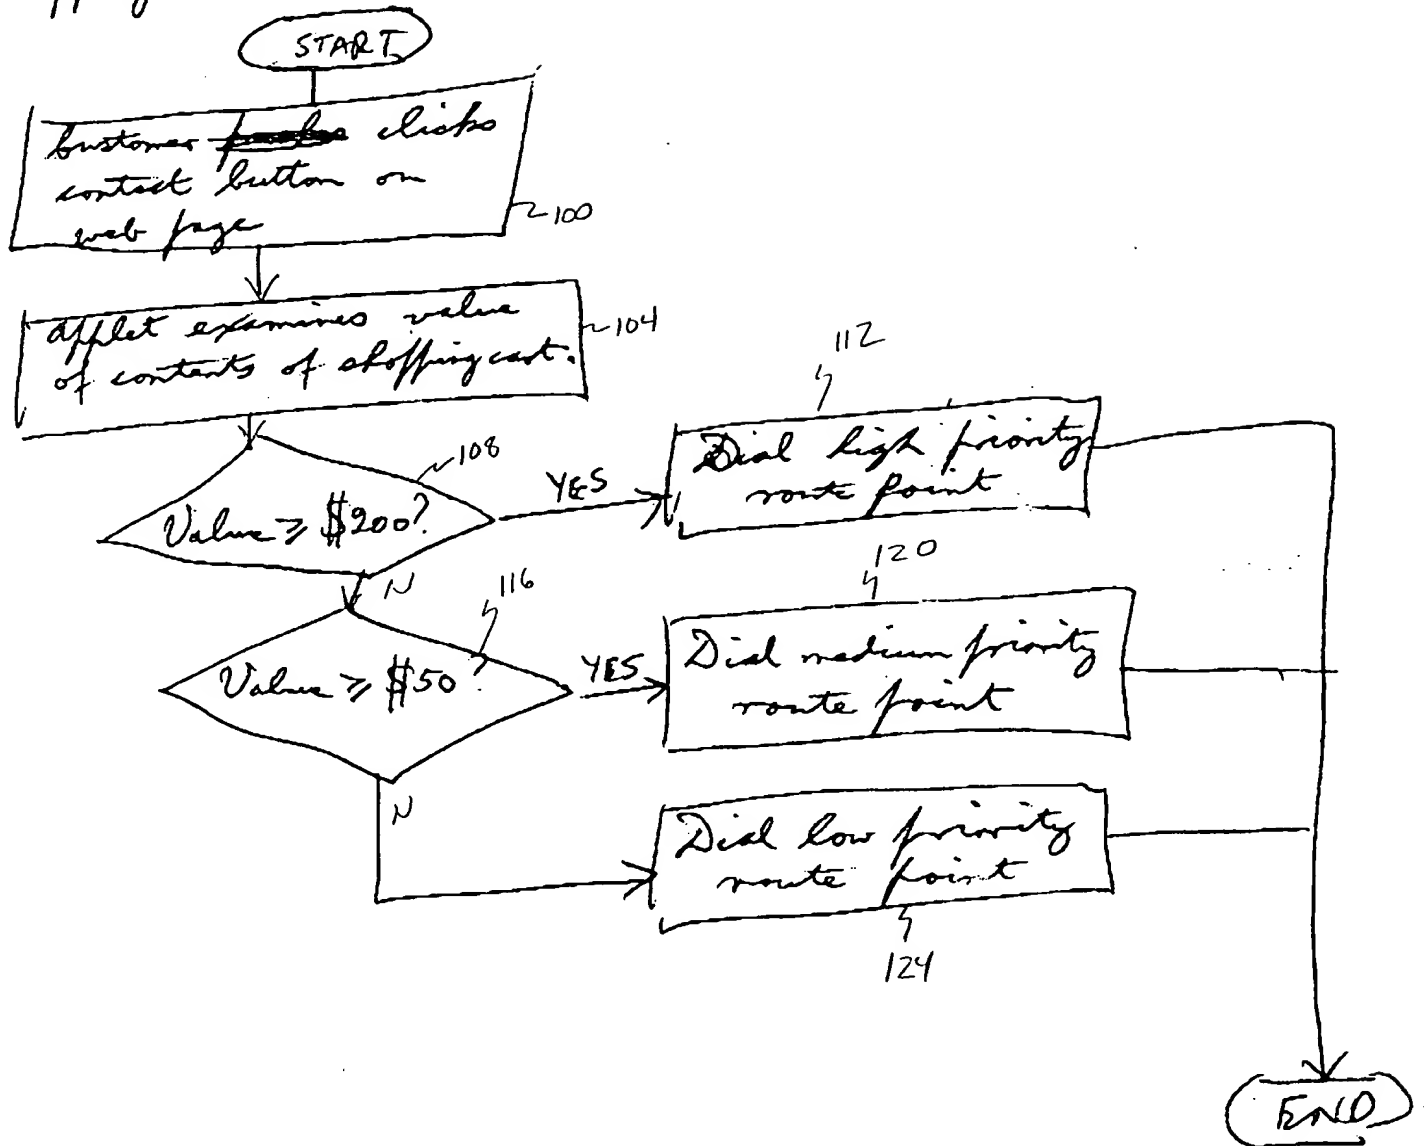 START
Customer clicks
contact button on
web page
100
applet examines value
of contents of shopping cart.
104
112
Dial high priority
route point
108
YES
Value ≥ $200?
N
120
116
Dial medium priority
route point
YES
Value ≥ $50?
N
Dial low priority
route point
124
END